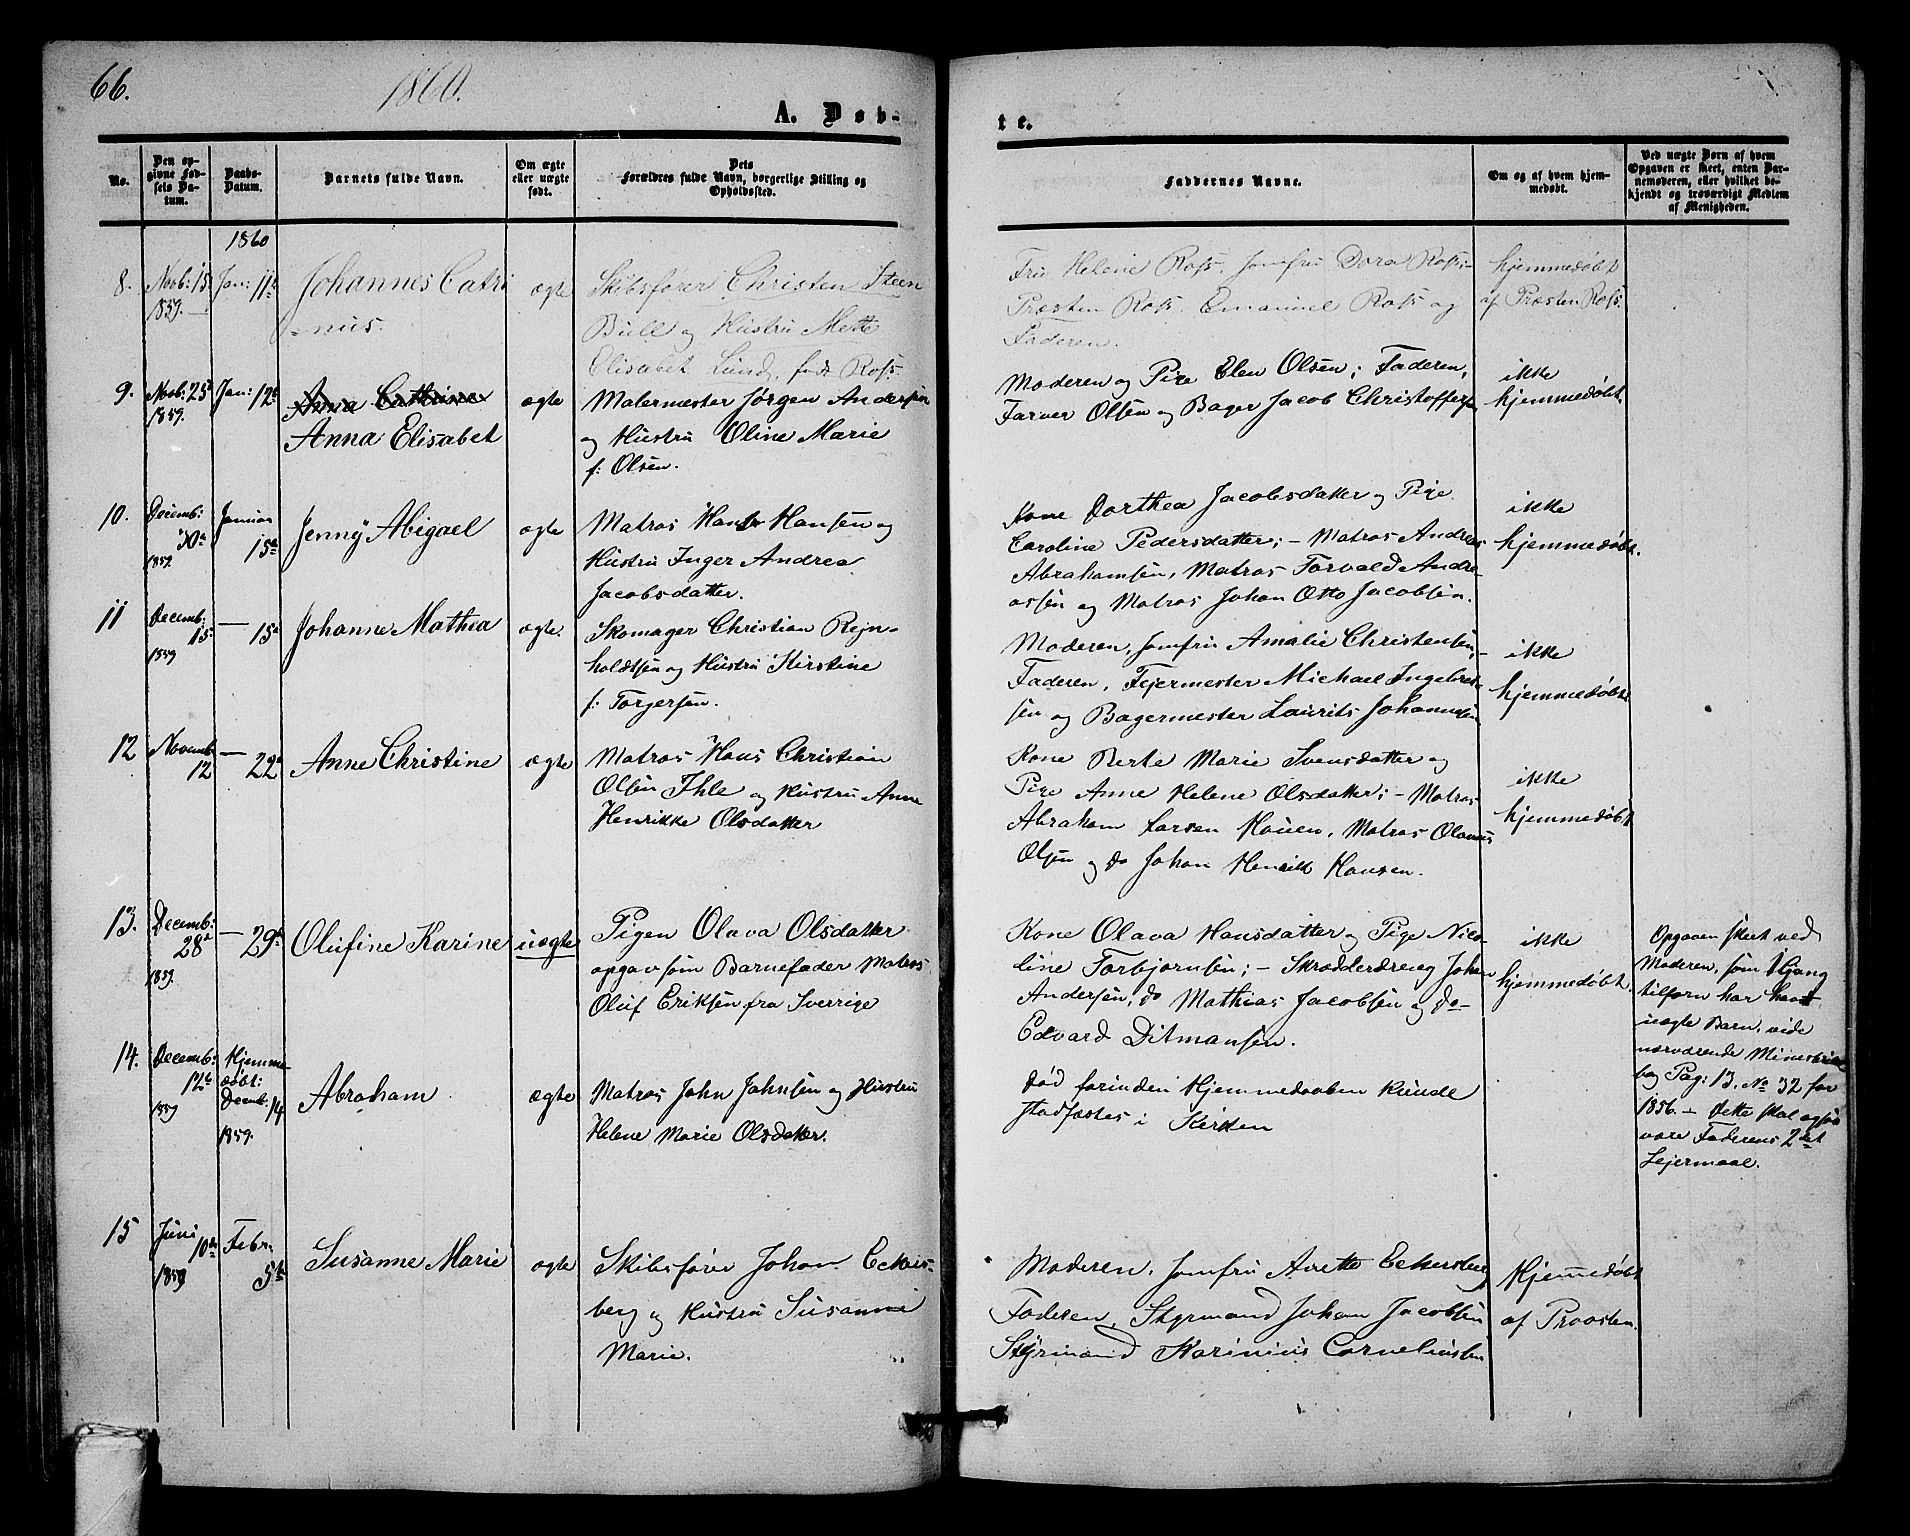 66.
1860.
A. Døb-
te.
No.
Den op-
givne Fød-
sels Da-
tum.
Daabs-
Datum.
Barnets fulde Navn.
Om ægte
eller uægte
født.
Dets
Forældres fulde Navn, borgerlige Stilling og
Opholdssted.
Faddernes Navne.
Om og af hvem hjem-
medøbt.
Ved uægte Børn af hvem
Opgaven er skeet, enten Bar-
nemoderen, eller hvilket be-
kjendt og troværdigt Medlem
af Menigheden.
1860
8.
Novb: 15
1859.
Jan: 11te
Johannes Catri
-nus.
ægte
Skibsfører Christen Steen
Bull og Hustru Mette
Elisabet Lund, født Ross.
Fru Helene Ross. Jomfru Dora Ross:-
Præsten Ross. Emanuel Ross og
Faderen.
hjemmedøbt
af Præsten Ross.
9.
Novb: 25d
1859.
Jan: 12te
Anna Cathrine
Anna Elisabet
ægte
Malermester Jørgen Andersen
og Hustru Oline Marie
f: Olsen.
Moderen og Pige Elen Olsen; Faderen,
Farver Olsen og Bager Jacob Christoffersen
ikke
hjemmedøbt.
10.
Decemb:
1859.
Januar
15de
Jenny Abigael
ægte
Matros Hansen og
Hustru Inger Andrea
Jacobsdatter.
Kone Dorthea Jacobsdatter og Pige
Caroline Pedersdatter; - Matros Andreas
Abrahamsen, Matros Torvald Andre-
assen og Matros Johan Otto Jacobsen.
ikke
hjemmedøbt.
11
Decemb:
15d
1859
— 15de
Johanne Mathea
ægte.
Skomager Christian Rejn-
holdtsen og Hustru Kirstine
f: Torgersen.
Moderen, Jomfru Amalie Christensen,-
Faderen, Fejermester Michael Ingebret-
sen og Bagermester Laurits Johannesen
ikke
hjemmedøbt.
12
Novemb
12
— 22d
Anne Christine
ægte
Matros Hans Christian
Olsen Ihle og Hustru Anne
Henrikke Olsdatter
Kone Berte Marie Svensdatter og
Pige Anne Helene Olsdatter; - Matros
Abraham Larsen Houen, Matros Olaus
Olsen og do Johan Henrik Hansen.
ikke
hjemmedøbt
13.
Decemb:
28d
1859.
— 29de
Olufine Karine
uægte
Pigen Olava Olsdatter
opgav som Barnefader Matros
Oluf Eriksen fra Sverrige
Kone Olava Hansdatter og Pige Nico-
line Torbjørnsen; - Skrædderdreng Johan
Andersen, do Mathias Jacobsen og do-
Edvard Ditmansen.
ikke
hjemmedøbt.
Opgaven skeet ved
Moderen, som 1 Gang
tilforn har havt
uægte Barn, vide
nærværende Ministerial-
bog Pag: 13. No 32 for
1856. - Dette skal ogsaa
være Faderens 2det
Lejermaal.
14.
Decemb:
12te
1859
Hjemme-
døbt:
Decemb:
14
1859.
Abraham
ægte
Matros John Johnsen og Hustru
Helene Marie Olsdatter.
Død forinden Hjemmedaaben kunde
stadfæstes i Kirken
15
Juni
10de
1859
Febr.
5te
Susanne Marie
ægte
Skibsfører Johan Eckers-
berg og Hustru Susanne
Marie.
Moderen, Jomfru Anette Eckersberg
Faderen, Styrmand Johan Jacobsen
Styrmand Karinius Corneliussen
Hjemmedøbt
af Præsten.